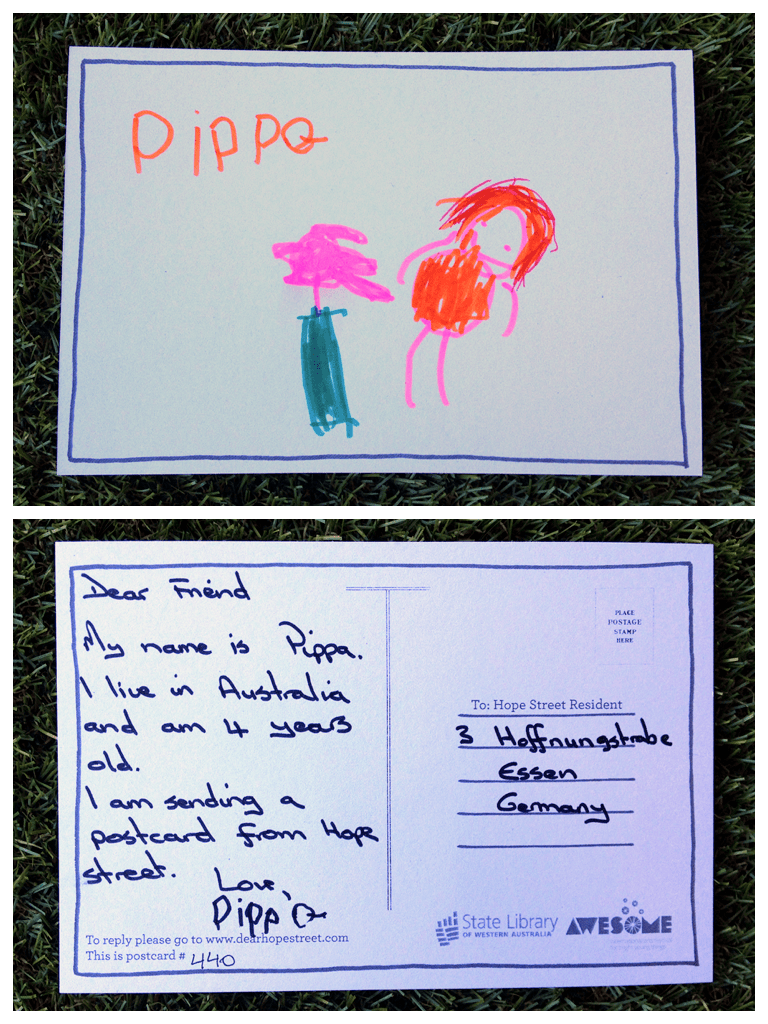 Pippa
Dear Friend
My name is Pippa.
I live in Australia
and am 4 years
old.
I am sending a
postcard from Hope
street.
Love,
Pippa
To reply please go to www.dearhopestreet.com
This is postcard # 440
PLACE
POSTAGE
STAMP
HERE
To: Hope Street Resident
3 Hoffnungstraße
Essen
Germany
State Library
OF WESTERN AUSTRALIA
AWESOME